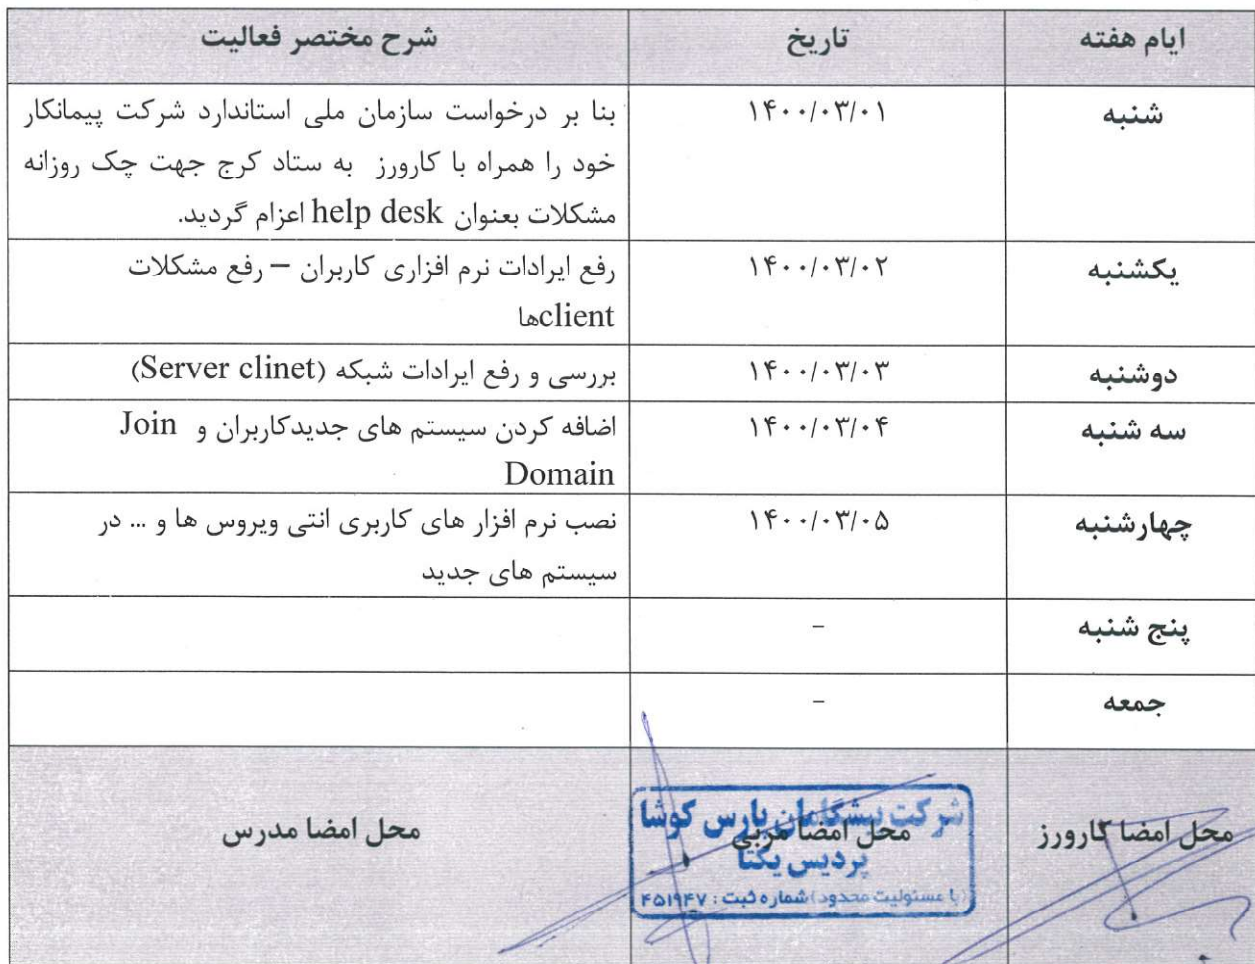 ایام هفته تاریخ شرح مختصر فعالیت
شنبه ۱۴۰۰/۰۳/۰۱ بنا بر درخواست سازمان ملی استاندارد شرکت پیمانکار
خود را همراه با کارورز به ستاد کرج جهت چک روزانه
مشکلات بعنوان help desk اعزام گردید.
یکشنبه ۱۴۰۰/۰۳/۰۲ رفع ایرادات نرم افزاری کاربران – رفع مشکلات
clientها
دوشنبه ۱۴۰۰/۰۳/۰۳ بررسی و رفع ایرادات شبکه (Server clinet)
سه شنبه ۱۴۰۰/۰۳/۰۴ اضافه کردن سیستم های جدیدکاربران و Join
Domain
چهارشنبه ۱۴۰۰/۰۳/۰۵ نصب نرم افزار های کاربری انتی ویروس ها و ... در
سیستم های جدید
پنج شنبه –
جمعه –
محل امضا کارورز محل امضا مربی محل امضا مدرس
شرکت پیشگامان پارس کوشا
پردیس یکتا
(با مسئولیت محدود) شماره ثبت : ۴۵۱۹۴۷